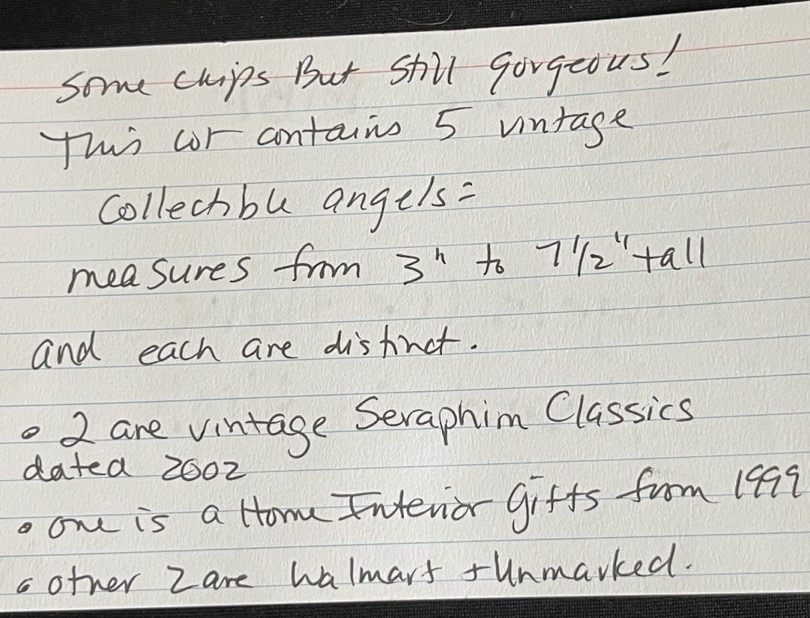 Some chips But Still gorgeous!
This lot contains 5 vintage
Collectible angels=
measures from 3" to 7 1/2" tall
and each are distinct.
• 2 are vintage Seraphim Classics
dated 2002
• one is a Home Interior Gifts from 1999
• other 2 are Walmart + Unmarked.